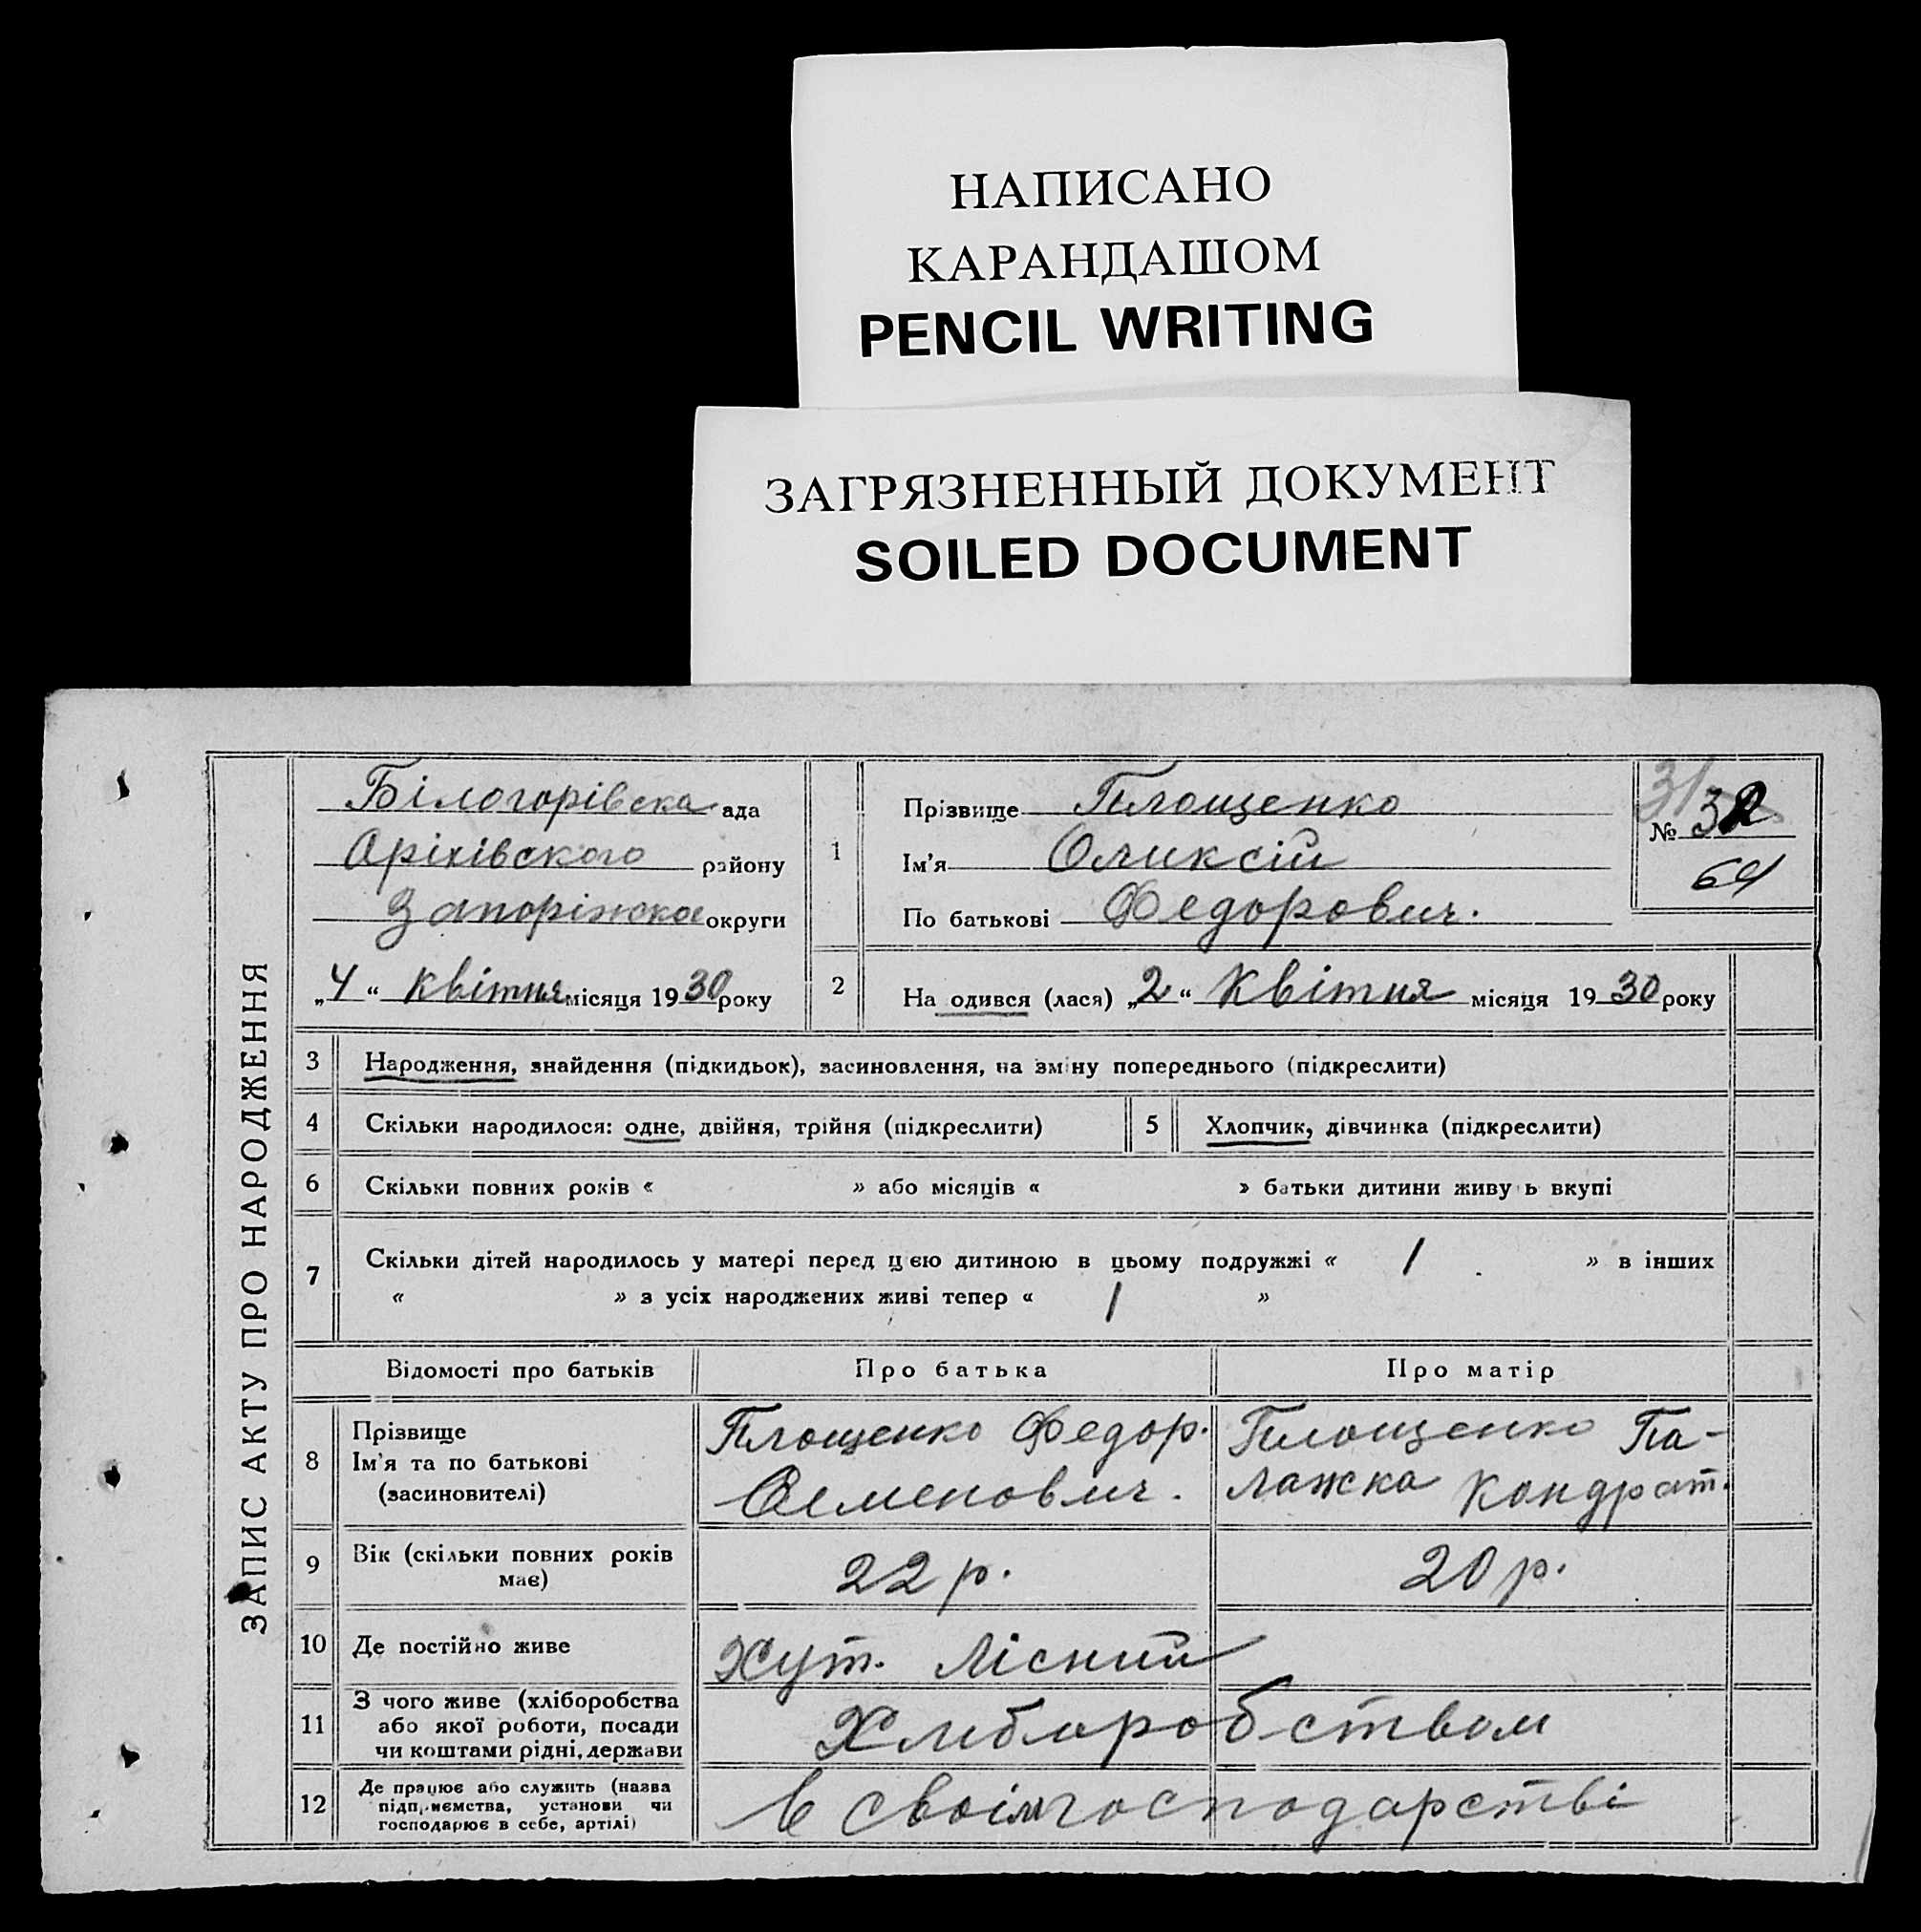 НАПИСАНО
КАРАНДАШОМ
PENCIL WRITING
ЗАГРЯЗНЕННЫЙ ДОКУМЕНТ
SOILED DOCUMENT
ЗАПИС АКТУ ПРО НАРОДЖЕННЯ
Білогорівска ада
Оріхівского району
Запоріжскоє округи
„4“ Квітня місяця 1930 року
1
Прізвище Площенко
Ім'я Оликсій
По батькові Федорович.
31
№ 32
64
2 На одився (лася) „2“ Квітня місяця 1930 року
3 Народження, знайдення (підкидьок), засиновлення, на зміну попереднього (підкреслити)
4 Скільки народилося: одне, двійня, трійня (підкреслити) 5 Хлопчик, дівчинка (підкреслити)
6 Скільки повних років « » або місяців « » батьки дитини живу ь вкупі
7 Скільки дітей народилось у матері перед цією дитиною в цьому подружжі « 1 » в інших
« » з усіх народжених живі тепер « 1 »
Відомості про батьків Про батька Про матір
8 Прізвище
Ім'я та по батькові
(засиновителі)
Площенко Федор.
Семенович.
Площенко Па-
лажка Кондрат.
9 Вік (скільки повних років
має)
22 р. 20 р.
10 Де постійно живе Хут. Лісний
11 З чого живе (хліборобства
або якої роботи, посади
чи коштами рідні, держави
Хлиборобством
12 Де працює або служить (назва
підприємства, установи чи
господарює в себе, артілі)
в своімгосподарстві